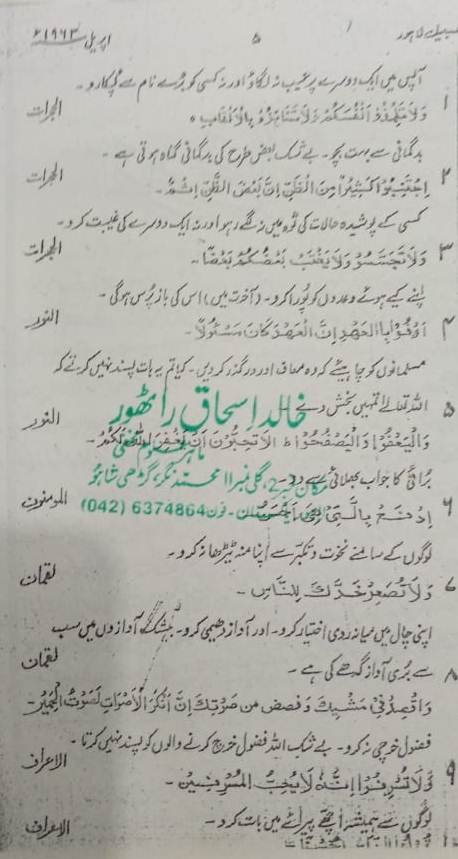 لاہور ۵ اپریل ۱۹۶۳ء
آپس میں ایک دوسرے پر عیب نہ لگاؤ اور نہ کسی کو بُرے نام سے پکارو۔
۱ وَلَا تَلْمِزُوْا اَنْفُسَكُمْ وَلَا تَنَابَزُوْا بِالْاَلْقَابِ الحجرات
بدگمانی سے بہت بچو۔ بے شک بعض طرح کی بدگمانی گناہ ہوتی ہے۔
۲ اِجْتَنِبُوْا كَثِيْرًا مِنَ الظَّنِّ اِنَّ بَعْضَ الظَّنِّ اِثْمٌ۔ الحجرات
کسی کے پوشیدہ حالات کی ٹوہ میں نہ لگے رہو اور نہ ایک دوسرے کی غیبت کرو۔
۳ وَلَا تَجَسَّسُوْ وَلَا يَغْتَبْ بَعْضُكُمْ بَعْضًا۔ الحجرات
اپنے کیے ہوئے وعدوں کو پُورا کرو۔ (آخرت میں) اس کی باز پُرس ہوگی۔
۴ اَوْفُوْا بِالْعَهْدِ اِنَّ الْعَهْدَ كَانَ مَسْئُوْلًا۔ النور
مسلمانوں کو چاہیئے کہ وہ معاف اور درگذر کر دیں۔ کیا تم یہ بات پسند نہیں کرتے کہ
اللہ تعالےٰ تمہیں بخش دے
خالد اسحاق راٹھور
۵ وَالْيَعْفُوْا وَالْيَصْفَحُوْا ط اَلَا تُحِبُّوْنَ اَنْ يَغْفِرَ اللّٰهُ لَكُمْ۔ النور
بُرائی کا جواب بھلائی سے دو۔
مکان نمبر 2، گلی نمبر 11 محمد نگر، گڑھی شاہو
۶ اِدْفَعْ بِالَّتِيْ المومنون
فون 6374864 (042)
لوگوں کے سامنے نخوت و تکبّر سے اپنا منہ ٹیڑھا نہ کرو۔
۷ وَلَا تُصَعِّرْ خَدَّكَ لِلنَّاسِ۔ لقمان
اپنی چال میں میانہ روی اختیار کرو۔ اور آواز دھیمی کرو۔ بیشک آوازوں میں سب
۸ سے بُری آواز گدھے کی ہے۔ لقمان
وَاقْصِدْ فِيْ مَشْيِكَ وَغْضُضْ مِنْ صَوْتِكَ اِنَّ اَنْكَرَ الْاَصْوَاتِ لَصَوْتُ الْحَمِيْرِ۔
فضول خرچی نہ کرو۔ بے شک اللہ فضول خرچ کرنے والوں کو پسند نہیں کرتا۔
۹ وَلَا تُسْرِفُوْا اِنَّهٗ لَا يُحِبُّ الْمُسْرِفِيْنَ۔ الاعراف
لوگوں سے ہمیشہ اچھے پیرائے میں بات کرو۔
الاعراف